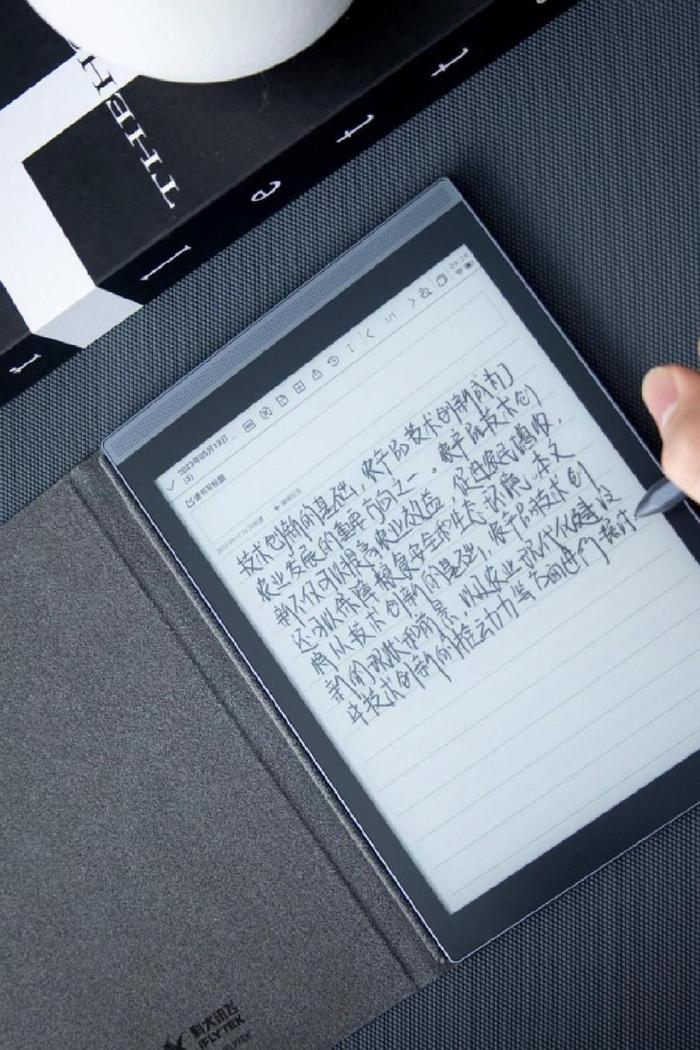 THE HT
l e t t
2023年05月13日
(3)
请书写标题
编辑标签
1/1
技术创新的基础,农产品技术创新成为了
农业发展的重要方向之一。农产品技术创
新不仅可以提高农业效益,促进农民增收,
还可以保障粮食安全和生态资源。本文
将从技术创新的基础,农产品技术创
新的现状和前景,以及农业现代化建设
与技术创新的推动力等方面进行探讨
科大讯飞
iFLYTEK